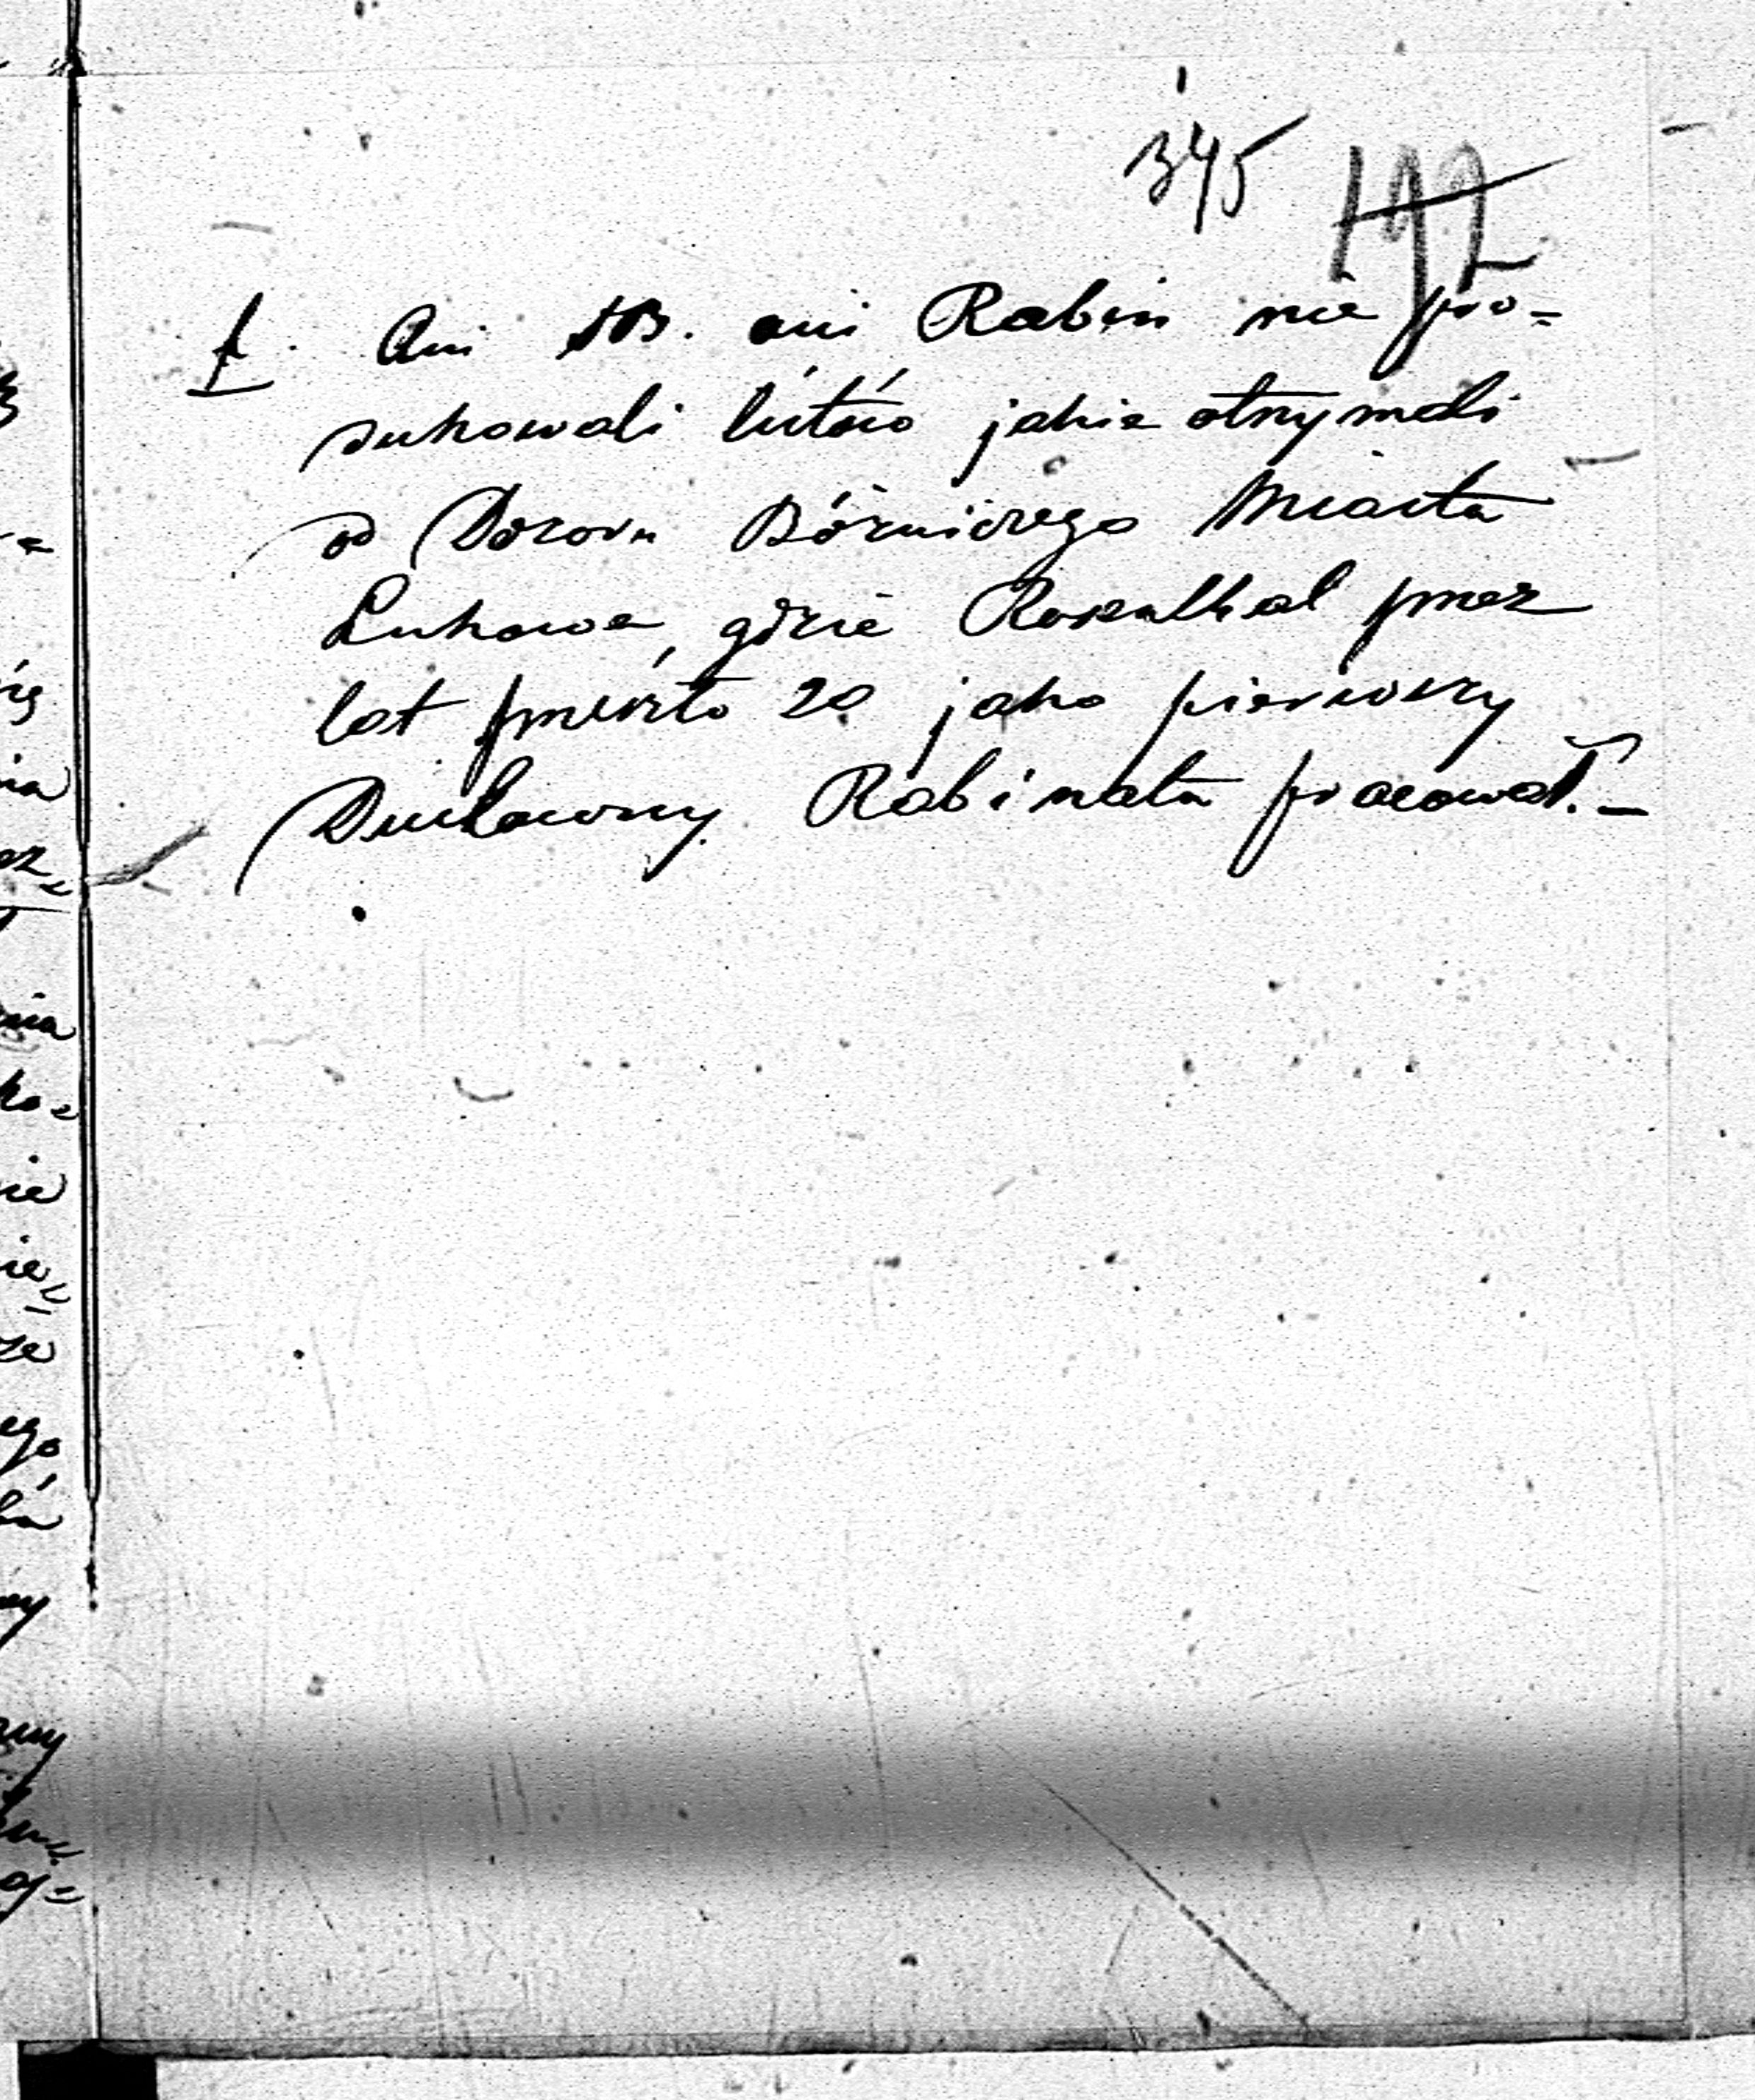 345 192
f. Ani DB. ani Rabin nie pro-
dukowali listów jakie otrzymali
od Dozoru Bóżniczego Miasta
Łukowa, gdzie Rosenthal przez
lat przeszło 20 jako pierwszy
Duchowny Rabinatu pracował.–